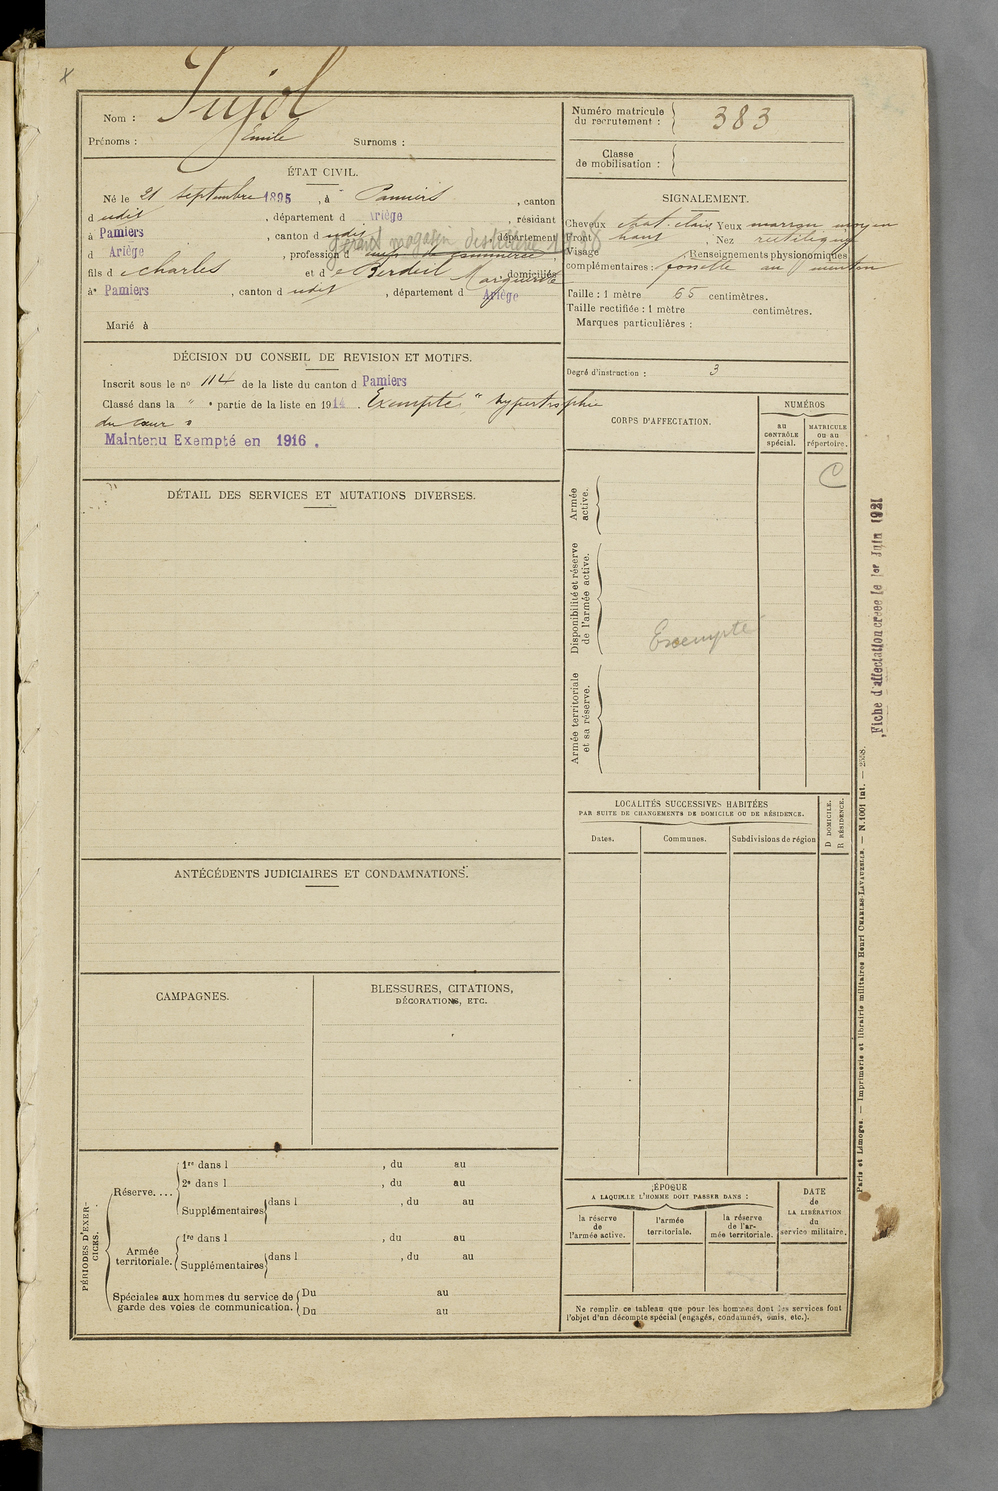 Nom : Pujol
Prénoms : Emile Surnoms :
Numéro matricule du recrutement : 383
Classe de mobilisation :
ÉTAT CIVIL.
Né le 21 septembre 1895, à Pamiers, canton
d udit, département d Ariège, résidant
à Pamiers, canton d udit, département
d Ariège, profession d
fils d e Charles et d e Marguerite domiciliés
à Pamiers, canton d udit, département d Ariège
Marié à
SIGNALEMENT.
Cheveux chat. clair Yeux marron moyen
Front haut, Nez rectiligne
Visage Renseignements physionomiques
complémentaires : fossette au menton
Taille : 1 mètre 65 centimètres.
Taille rectifiée : 1 mètre centimètres.
Marques particulières :
Degré d'instruction : 3
DÉCISION DU CONSEIL DE REVISION ET MOTIFS.
Inscrit sous le nº 114 de la liste du canton d Pamiers
Classé dans la " " partie de la liste en 1914. Exempté " hypertrophie
du cœur "
Maintenu Exempté en 1916.
CORPS D'AFFECTATION.
NUMÉROS
au CONTRÔLE spécial.
MATRICULE ou au répertoire.
C
Armée active.
Disponibilité et réserve de l'armée active.
Exempté
Armée territoriale et sa réserve.
Fiche d'affectation créée le 1er Juin 1921
DÉTAIL DES SERVICES ET MUTATIONS DIVERSES.
LOCALITÉS SUCCESSIVES HABITÉES
PAR SUITE DE CHANGEMENTS DE DOMICILE OU DE RÉSIDENCE.
Dates. Communes. Subdivisions de région
D DOMICILE.
R RÉSIDENCE.
ANTÉCÉDENTS JUDICIAIRES ET CONDAMNATIONS.
CAMPAGNES.
BLESSURES, CITATIONS,
DÉCORATIONS, ETC.
PÉRIODES D'EXERCICES.
Réserve....
1re dans l , du au
2e dans l , du au
Supplémentaires dans l , du au
Armée territoriale.
1re dans l , du au
Supplémentaires dans l , du au
Spéciales aux hommes du service de garde des voies de communication.
Du au
Du au
ÉPOQUE
A LAQUELLE L'HOMME DOIT PASSER DANS :
la réserve de l'armée active.
l'armée territoriale.
la réserve de l'armée territoriale.
DATE de LA LIBÉRATION du service militaire.
Ne remplir ce tableau que pour les hommes dont les services font
l'objet d'un décompte spécial (engagés, condamnés, omis, etc.).
Paris et Limoges. — Imprimerie et librairie militaires Henri CHARLES-LAVAUZELLE. — N.1001 int. — 2558.